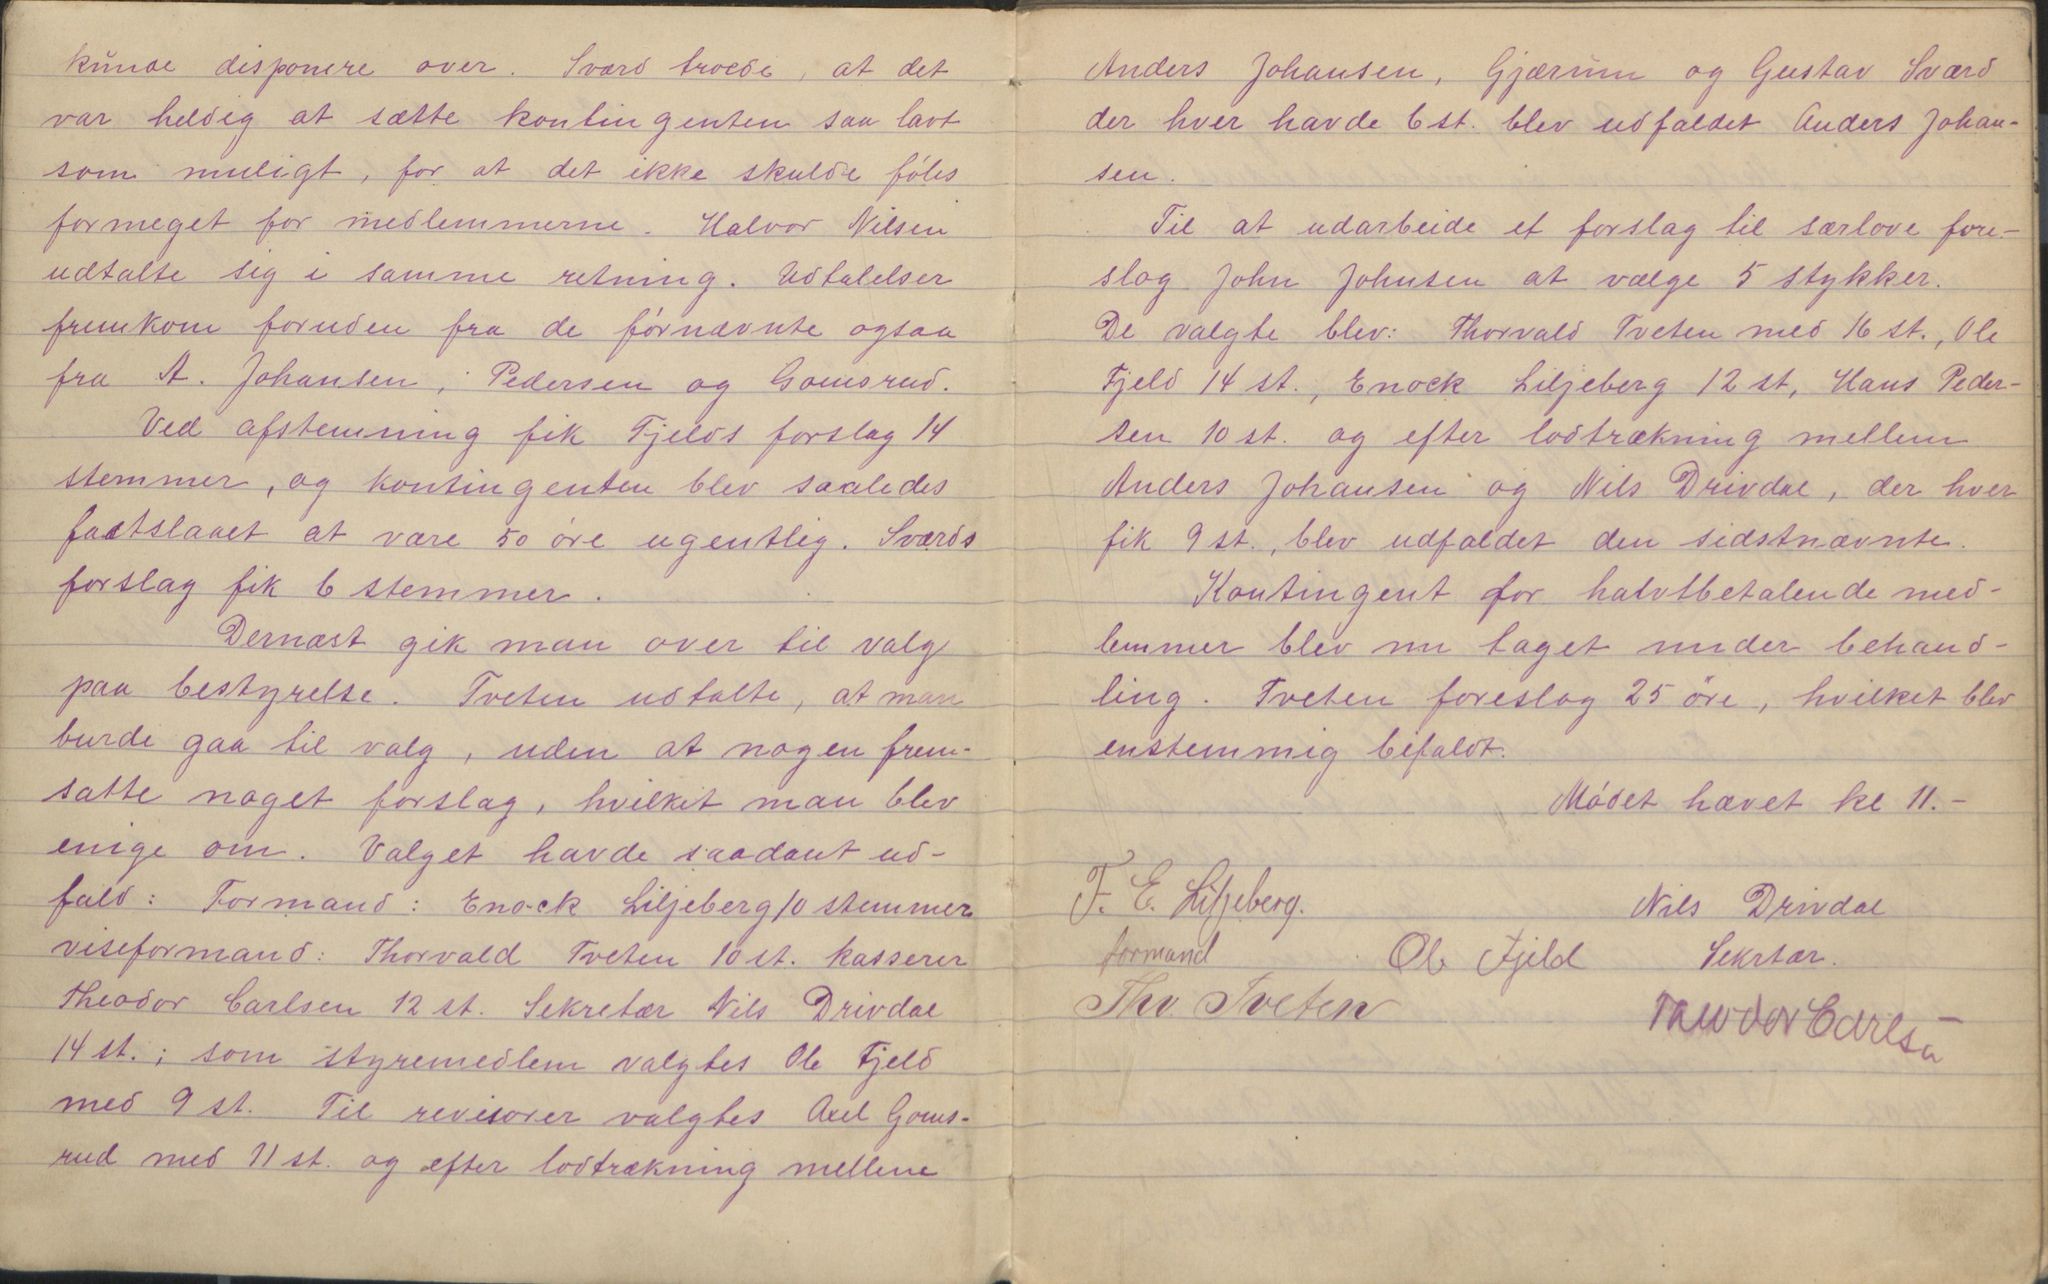 kunde disponere over. Sværd troede, at det
var heldig at sætte kontingenten saa lavt
som muligt, for at det ikke skulde föles
formeget for medlemmerne. Halvor Nilsen
udtalte sig i samme retning. Udtalelser
fremkom foruden fra de förnævnte ogsaa
fra A. Johansen, Pedersen og Gomsrud.
Ved afstemning fik Fjelds forslag 14
stemmer, og kontingenten blev saaledes
fastslaaet at være 50 öre ugentlig. Sværds
forslag fik 6 stemmer.
Dernæst gik man over til valg
paa bestyrelse. Tveten udtalte, at man
burde gaa til valg, uden at nogen frem-
satte noget forslag, hvilket man blev
enige om. Valget havde saadant ud-
fald: Formand: Enock Liljeberg 10 stemmer
viseformand: Thorvald Tveten 10 st. kasserer
Theodor Carlsen 12 st. Sekretær Nils Drivdal
14 st.; som styremedlem valgtes Ole Fjeld
med 9 st. Til revisorer valgtes Axel Goms-
rud med 11 st. og efter lodtrækning mellem
Anders Johansen, Gjærum og Gustav Sværd
der hver havde 6 st. blev udfaldet Anders Johan-
sen.
Til at udarbeide et forslag til særlove fore-
slog John Johnsen at vælge 5 stykker.
De valgte blev: Thorvald Tveten med 16 st., Ole
Fjeld 14 st., Enock Liljeberg 12 st, Hans Peder-
sen 10 st. og efter lodtrækning mellem
Anders Johansen og Nils Drivdal, der hver
fik 9 st., blev udfaldet den sidstnævnte.
Kontingent for halvtbetalende med-
lemmer blev nu taget under behand-
ling. Tveten foreslog 25 öre, hvilket blev
enstemmig bifaldt.
Mödet hævet kl 11.-
F. E. Liljeberg. Nils Drivdal
formand Ole Fjeld Sekrtær.
Thv Tveten Theodor Carlsen